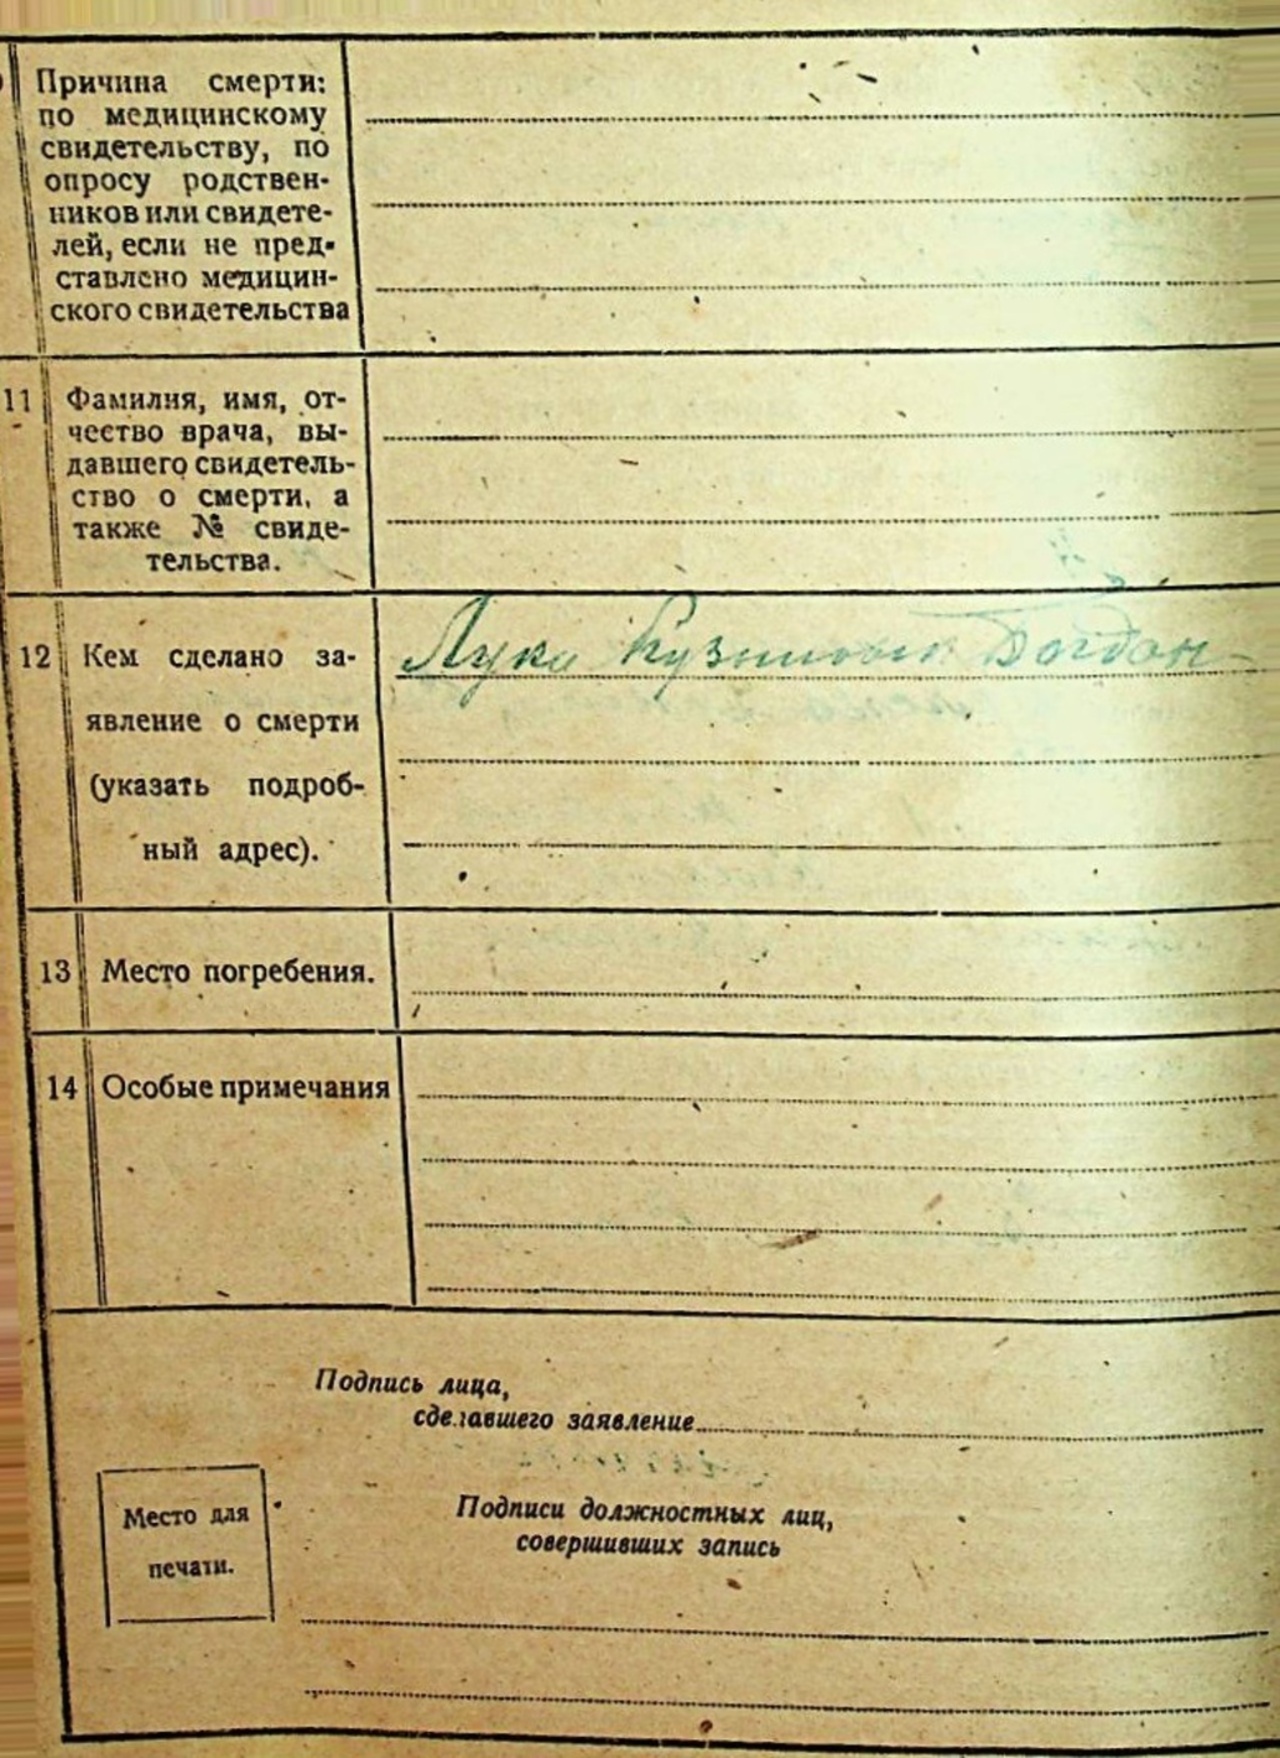 Причина смерти:
по медицинскому
свидетельству, по
опросу родствен-
ников или свидете-
лей, если не пред-
ставлено медицин-
ского свидетельства
11 Фамилия, имя, от-
чество врача, вы-
давшего свидетель-
ство о смерти, а
также № свиде-
тельства.
12 Кем сделано за- Лука Кузьмович Богдан
явление о смерти
(указать подроб-
ный адрес).
13 Место погребения.
14 Особые примечания
Подпись лица,
сделавшего заявление
Место для
печати.
Подписи должностных лиц,
совершивших запись